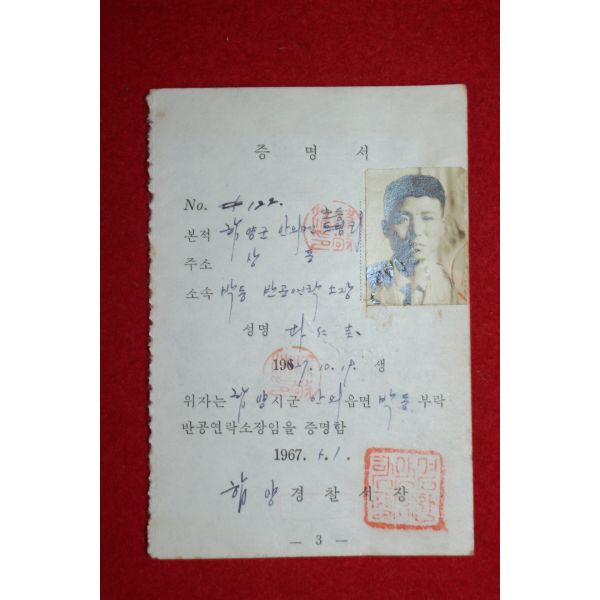 증 명 서
No. 122.
본적 함양군 안의면
주소 상 동
소속 박동 반공연락소장
성명
27.10.19. 생
위자는 함양시군 안의읍면 박동 부락
반공연락소장임을 증명함
1967. 1.
함양경찰서장
— 3 —